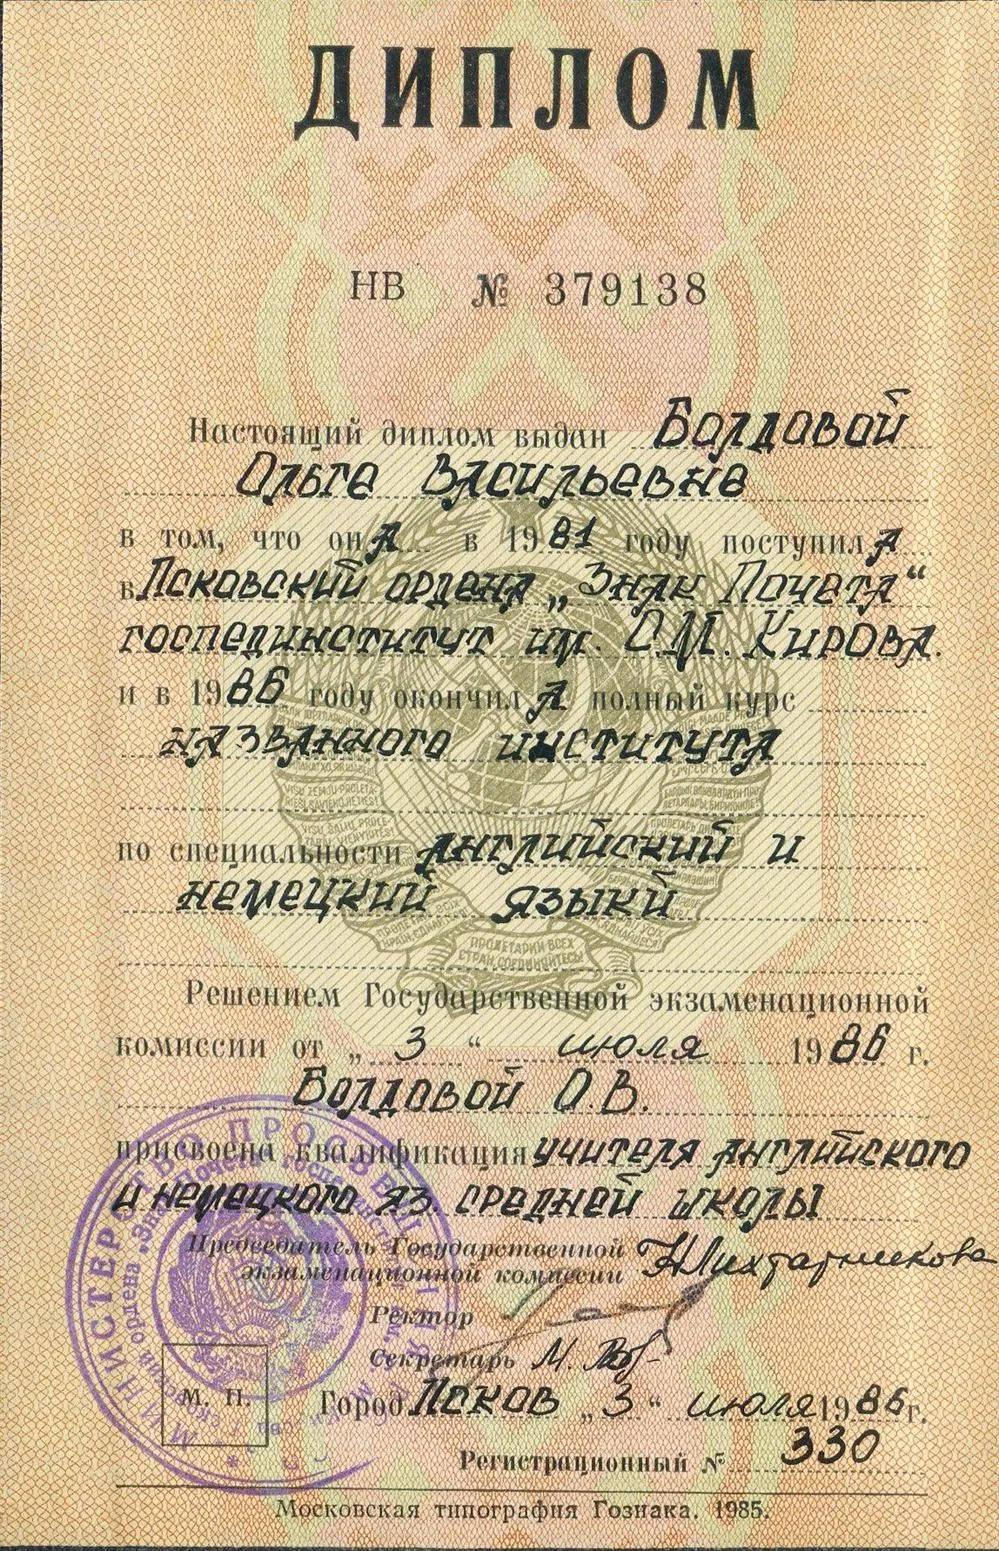 ДИПЛОМ
НВ № 379138
Настоящий диплом выдан Болдовой
Ольге Васильевне
в том, что она в 1981 году поступила
в Псковский ордена „Знак Почета“
госпединститут им. С.М. Кирова.
и в 1986 году окончила полный курс
названного института
по специальности английский и
немецкий языки
ПРОЛЕТАРИИ ВСЕХ
СТРАН, СОЕДИНЯЙТЕСЬ!
Решением Государственной экзаменационной
комиссии от „3“ июля 1986 г.
Болдовой О.В.
присвоена квалификация учителя английского
и немецкого яз. средней школы
Председатель Государственной
экзаменационной комиссии
Ректор
Секретарь М.
М. П.
Город Псков „3“ июля 1986 г.
Регистрационный № 330
МИНИСТЕРСТВО ПРОСВЕЩЕНИЯ
Московская типография Гознака. 1985.